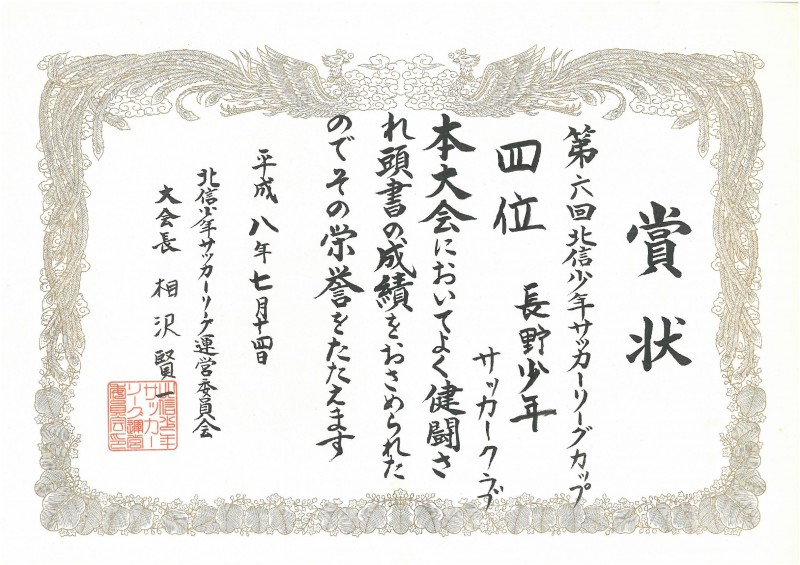 賞状
第六回北信少年サッカーリーグカップ
四位
長野少年
サッカークラブ
本大会においてよく健闘さ
れ頭書の成績をおさめられた
のでその栄誉をたたえます
平成八年七月十四日
北信少年サッカーリーグ運営委員会
大会長 相沢賢一
北信少年
サッカー
リーグ運営
委員会印